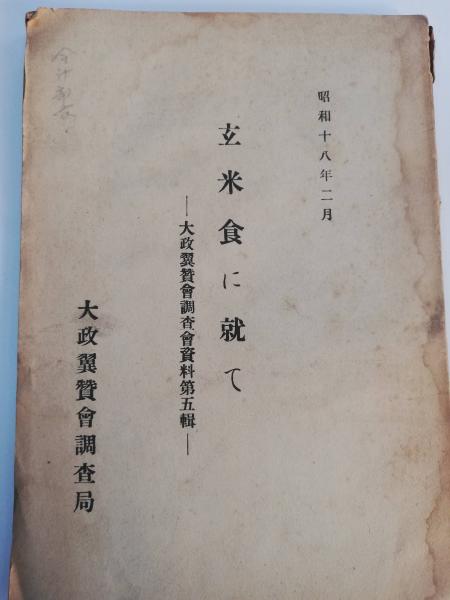 昭和十八年二月
玄米食に就て
―大政翼賛會調査會資料第五輯―
大政翼賛會調査局